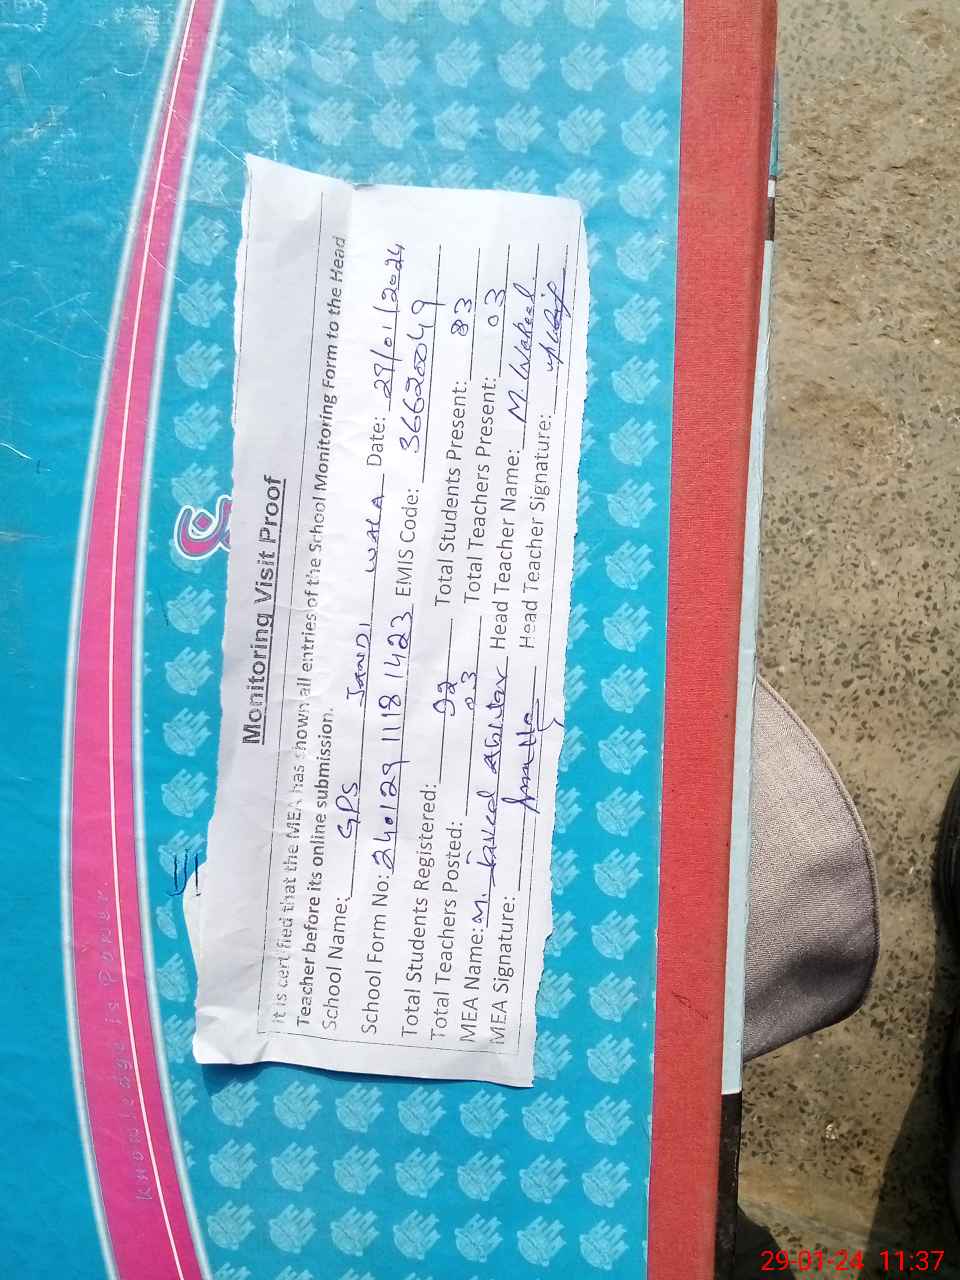 Monitoring Visit Proof
It is certified that the MEA has shown all entries of the School Monitoring Form to the Head
Teacher before its online submission.
School Name: GPS Jandi WALA Date: 29/01/2024
School Form No: 240129 1118 1423 EMIS Code: 36620049
Total Students Registered: 92 Total Students Present: 83
Total Teachers Posted: 03 Total Teachers Present: 03
MEA Name: M. Akhtar Head Teacher Name: M. Wakeel
MEA Signature: Head Teacher Signature:
Knowledge is Power
29-01-24 11:37